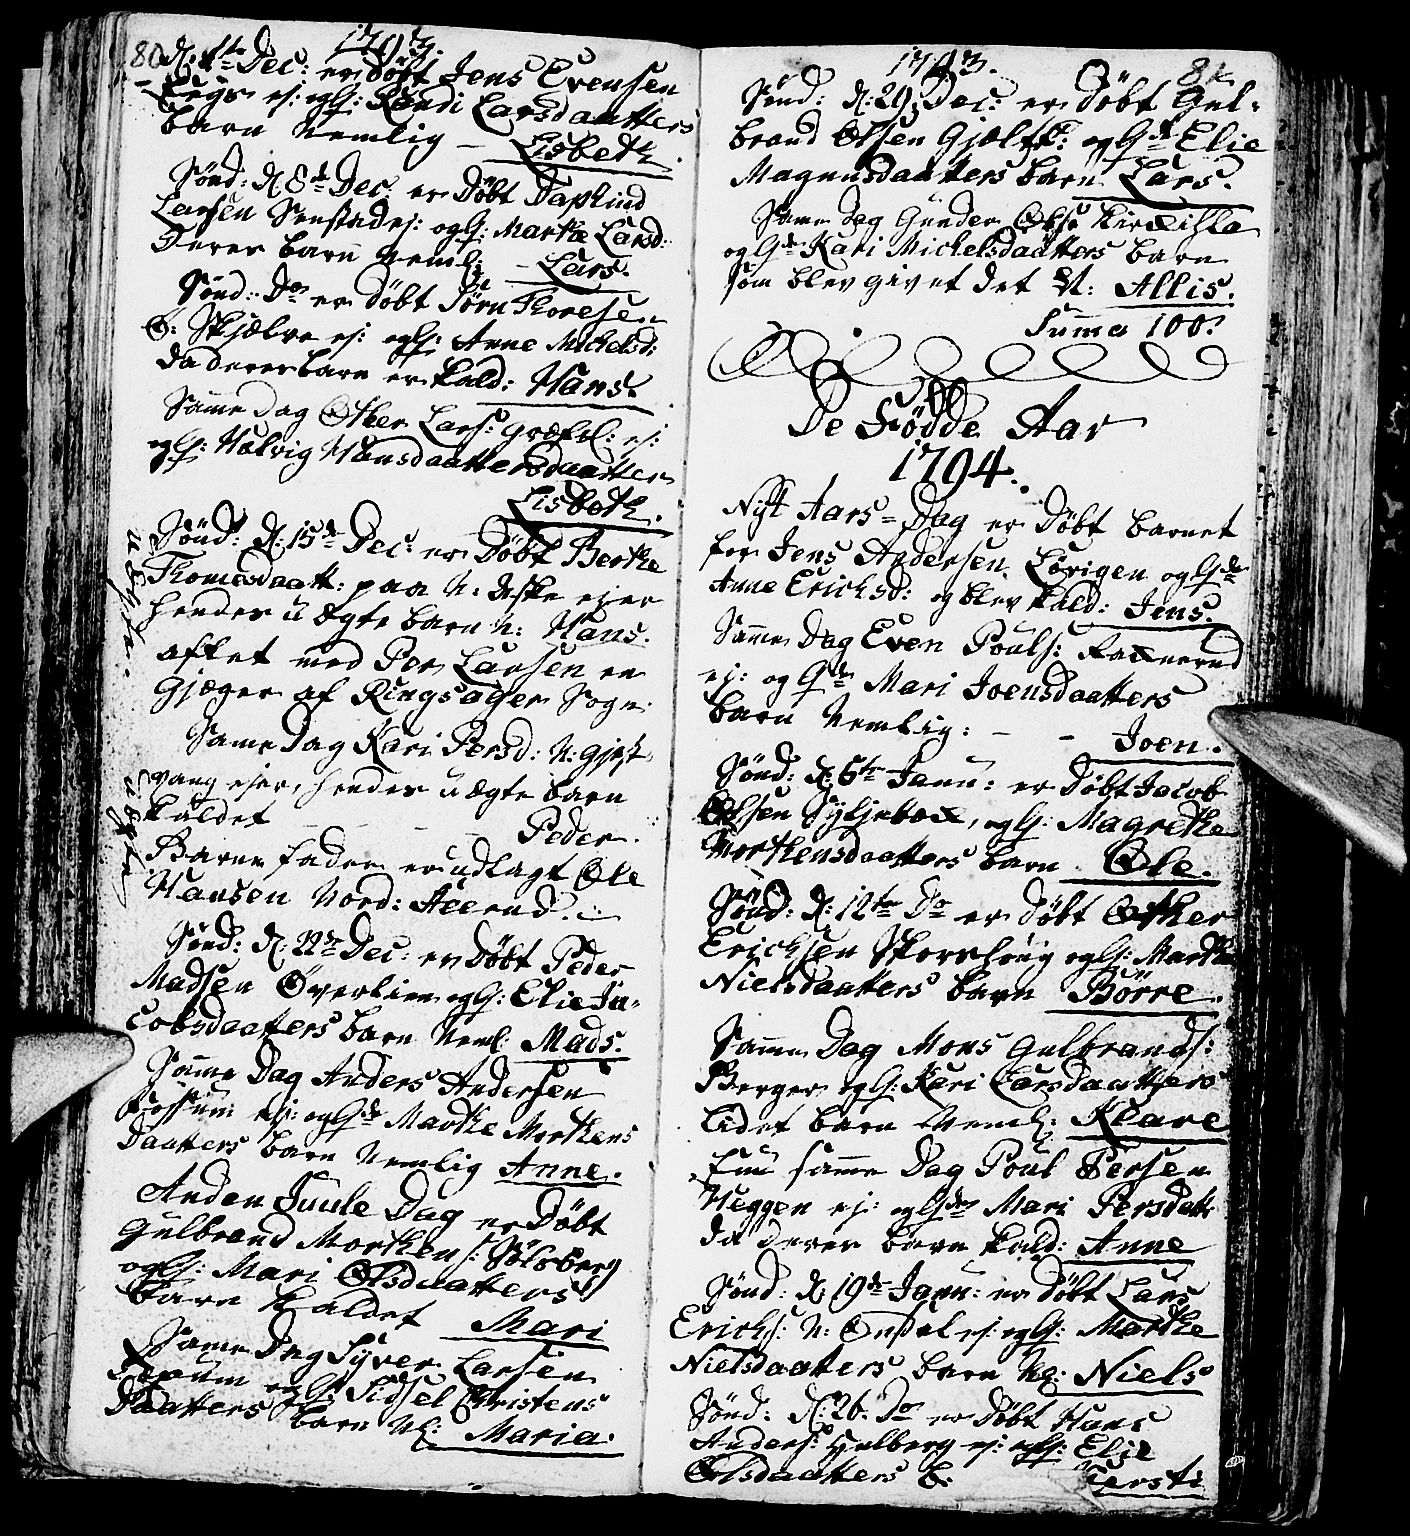 80
1793.
D: 1te Dec: er Døbt Jens Evensen
ej: og H: Randi Larsdaatters
barn Nemlig - Lisbeth.
Sønd: D: 8de Dec. er Døbt
Larsen ej: og H: Marthe Larsd:
Deres barn Neml: - Lars.
Sønd: Do er Døbt Jørn Thorese
ej: og H: Anne Michelsd:
da deres barn er kald: Hans.
Samme dag Other Lars: ej:
og H: Hælvig Hansdaattersdaatter
Lisbeth.
Sønd: D: 15de Dec: er Døbt Berthe
Thomesdaatt: paa N: ejer
hendes uægte barn N: Hans.
aflet med Per Larsen en
Gjæger af Ringsager Sogn.
Samme dag Kari Persd: N:
vang ejer, hendes uægte barn
kaldet - - - - Peder.
Barne fader er udlagt Ole
Hansen Nord:
Sønd: D: 22de Dec: er Døbt Peder
Madsen Øverlien og H: Elie Ja-
cobsdaatters barn Neml: Mads.
Samme Dag Anders Andersen
Fossum ej: og H: Marthe Morthens
Daatters barn Nemlig Anne.
Anden Juule Dag er Døbt
Gulbrand Morthens: Sølsberg
og H: Mari Olsdaatters
barn kaldet Mari
Samme Dag Syver Larsen
og H: Sidsel Christens
Daatters barn N: Maria.
uægte.
uægte
81
1793.
Sønd: D: 29. Dec: er Døbt Gul-
brand Olsen og H: Elie
Magnusdaatters barn Lars.
Samme Dag Gunder Ols:
og H: Kari Michelsdaatters barn
som blev givet det N: Allis.
Summa 100.
De Fødde Aar
1794.
Nyt Aars-Dag er Døbt barnet
for Jens Andersen Lørigen og H:
Anne Ericksd: og blev kald: Jens.
Samme Dag Even Pouls:
ej: og H: Mari Joensdaatters
barn Nemlig: - - Joen.
Sønd: D: 5te Janu: er Døbt Jacob
Olsen og H: Magrethe
Morthensdaatters barn Ole.
Sønd: D: 12te Do er Døbt Other
Ericksen og H: Marthe
Nielsdaatters barn Børre.
Samme Dag Mons Gulbrands:
Berger og H: Kari Larsdaatters
lidet barn Neml: Klare
End samme Dag Poul Persen
Heggen ej: og H: Mari Persdatt:
da deres barn kald: Anne
Sønd: D: 19de Janu: er Døbt Lars
Ericks: N: ej: og H: Marthe
Nielsdaatters barn N: Niels
Sønd: D: 26. Do er Døbt Hans
Anders: Hulberg ej: og H: Elie
Olsdaatters b. Kersti